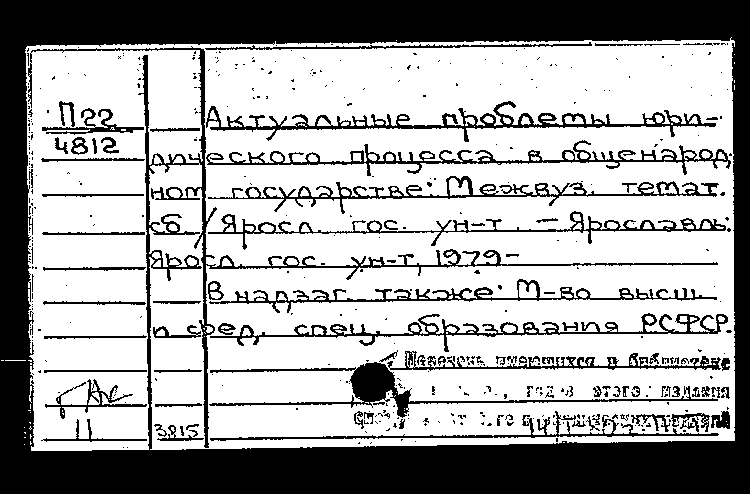 П22
4812
Актуальные проблемы юри-
дического процесса в общенарод
ном государстве: Межвуз. темат.
сб / Яросл. гос. ун-т. — Ярославль:
Яросл. гос. ун-т, 1979-
В надзаг. также: М-во высш.
и сред. спец. образования РСФСР.
Перечень имеющихся в библиотеке
год в этого издания
11
3815